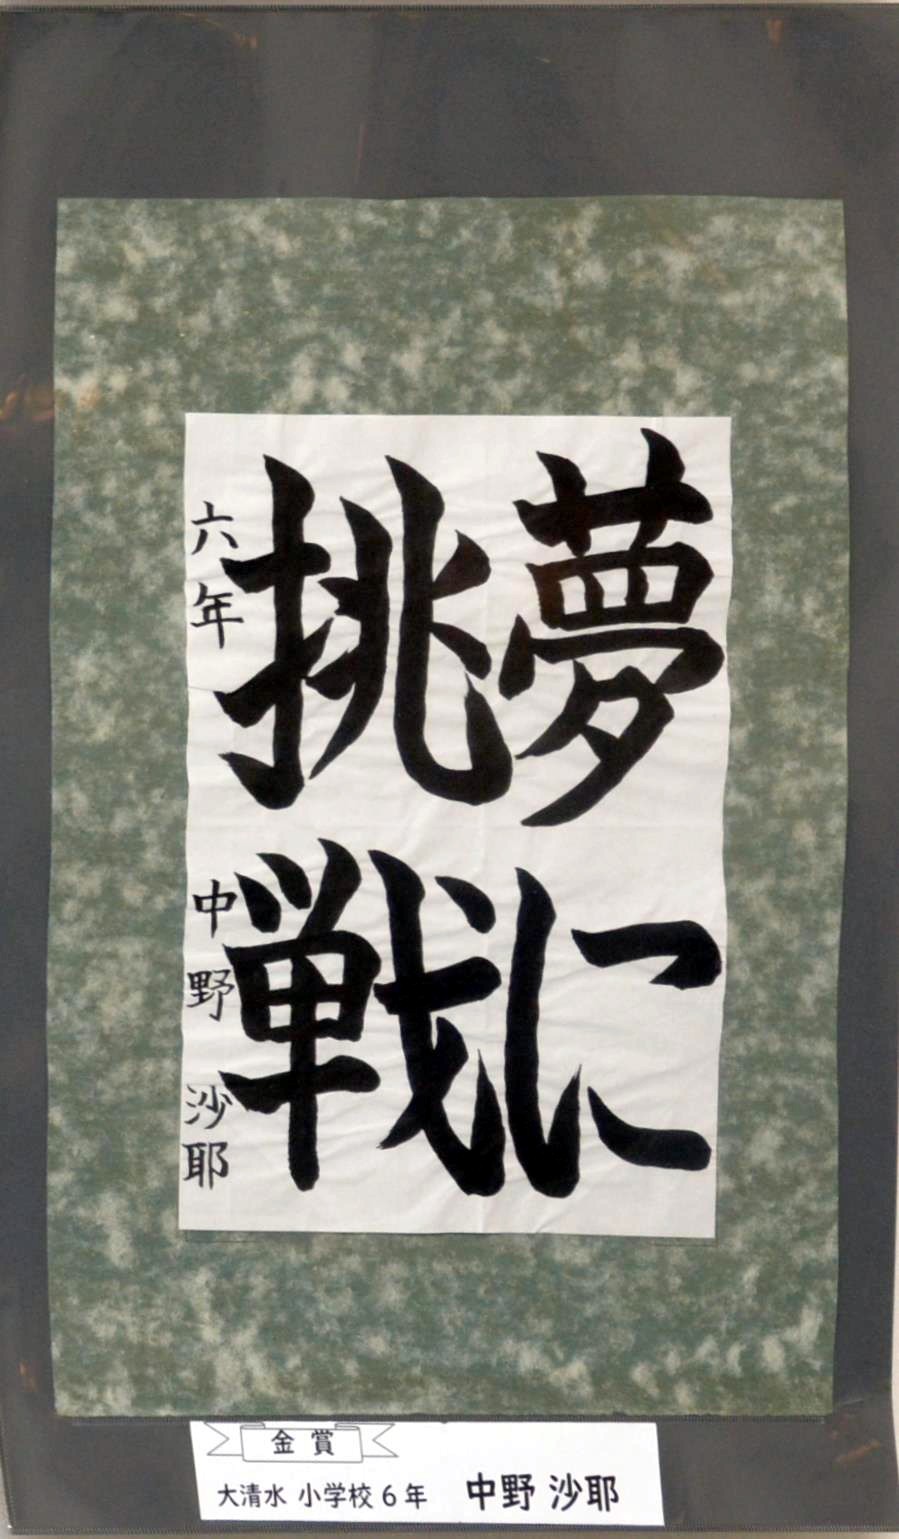 夢に
挑戦
六年 中野 沙耶
金賞
大清水 小学校6年 中野 沙耶